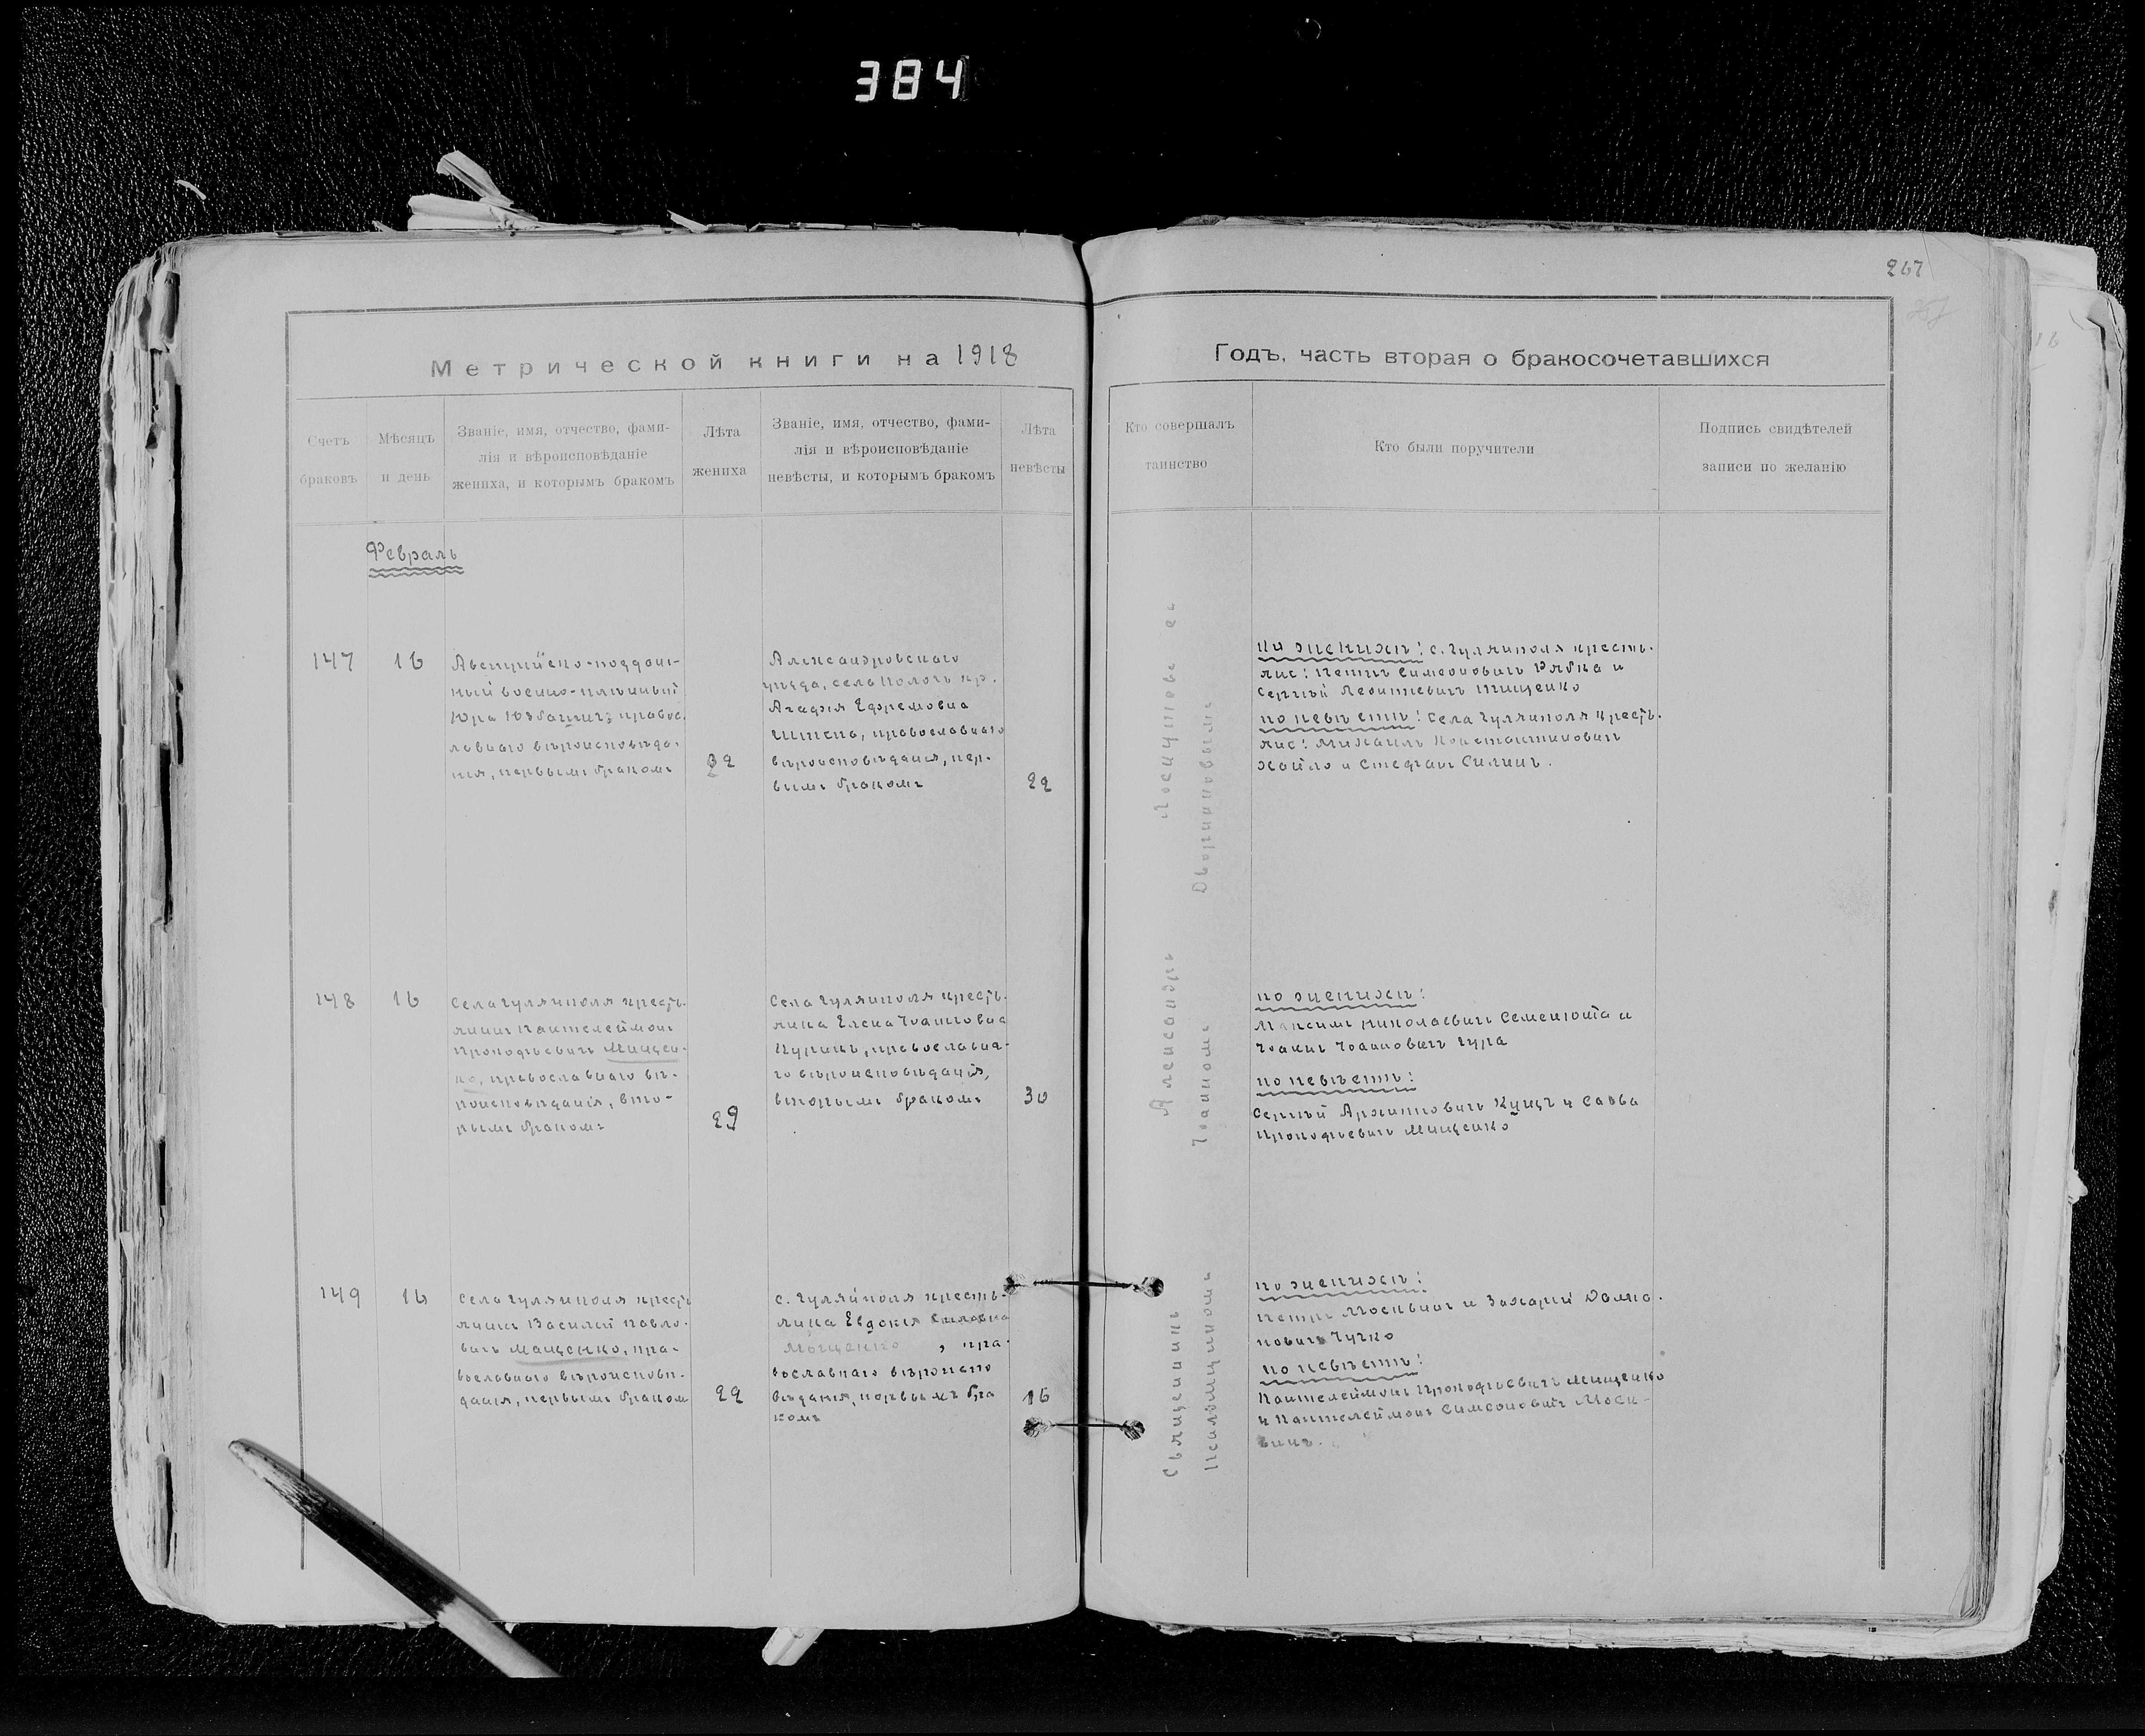 384
267
Метрической книги на 1918
Годъ, часть вторая о бракосочетавшихся
Счетъ
браковъ
Мѣсяцъ
и день
Званіе, имя, отчество, фами-
лія и вѣроисповѣданіе
жениха, и которымъ бракомъ
Лѣта
жениха
Званіе, имя, отчество, фами-
лія и вѣроисповѣданіе
невѣсты, и которымъ бракомъ
Лѣта
невѣсты
Кто совершалъ
таинство
Кто были поручители
Подпись свидѣтелей
записи по желанію
Февраль
147
16
Австрійско-поддан-
ный военно-плѣнный
Юра правос-
лавнаго вѣроисповѣда-
нія, первымъ бракомъ
32
Александровскаго
уѣзда, села Пологъ кр.
Агафія Ефремовна
православнаго
вѣроисповѣданія, пер-
вымъ бракомъ
22
по женихѣ: с. Гуляйполя кресть-
яне: Петръ Симеоновичъ Рябка и
Сергѣй Леонтіевичъ Тищенко
по невѣстѣ: села Гуляйполя кресть-
яне: Михаилъ Константиновичъ
Хайло и Стефанъ Силинъ.
148
16
Села Гуляйполя кресть-
янинъ Пантелеймонъ
Прокофьевичъ Мищен-
ко, православнаго вѣ-
роисповѣданія, вто-
рымъ бракомъ
29
Села Гуляйполя кресть-
янка Елена Іоанновна
православна-
го вѣроисповѣданія,
вторымъ бракомъ
30
по женихѣ:
Максимъ Николаевичъ Семенюта и
Іоаннъ Іоанновичъ Гура
по невѣстѣ:
Сергѣй Архиповичъ Куцъ и Савва
Прокофьевичъ Мищенко
149
16
Села Гуляйполя кресть-
янинъ Василій Павло-
вичъ Мищенко, пра-
вославнаго вѣроисповѣ-
данія, первымъ бракомъ
22
с. Гуляйполя кресть-
янка Евдокія
, пра-
вославнаго вѣроиспо
вѣданія, первымъ бра
комъ
16
по женихѣ:
Петръ Москвинъ и Захарій Домно-
новичъ Чучко
по невѣстѣ:
Пантелеймонъ Прокофьевичъ Мищенко
и Пантелеймонъ Симеоновичъ Моск-
винъ.
Священникъ Александръ Лосунтовъ съ
Псаломщикомъ Іоанномъ Дворниковымъ